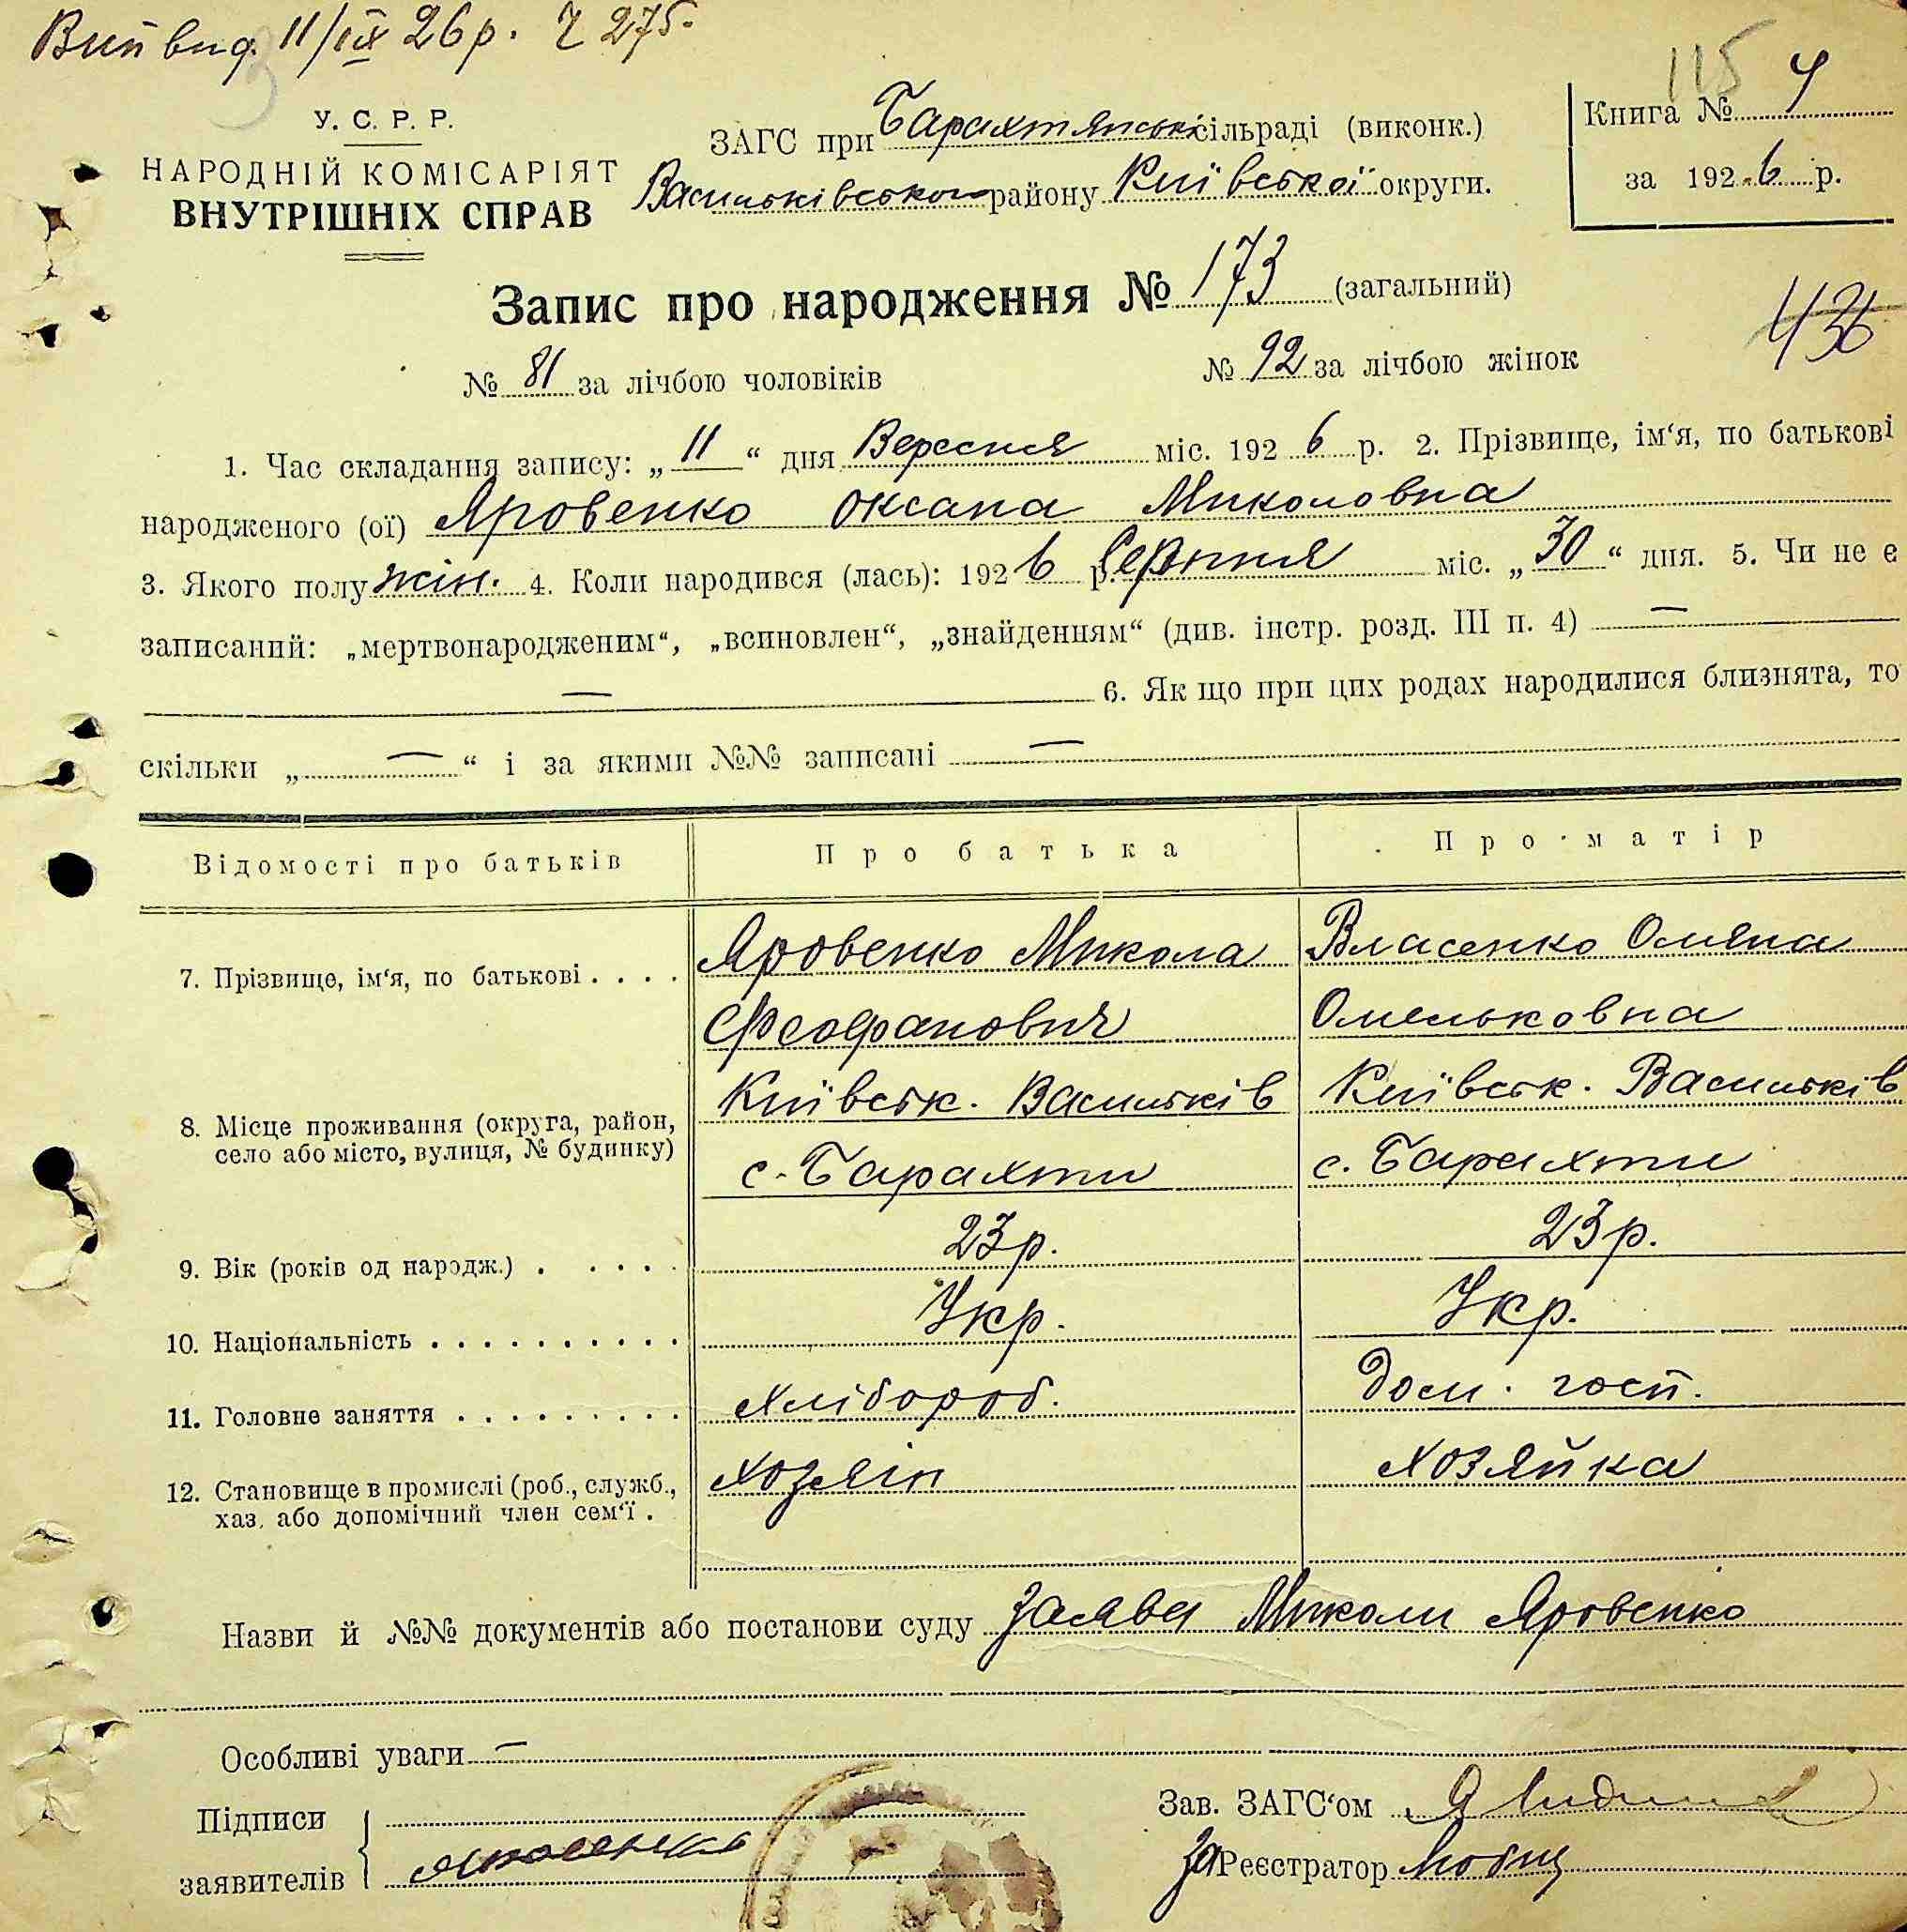 Вип вид. 11/IX 26 р. Ч 275.
115
У. С. Р. Р.
НАРОДНІЙ КОМІСАРІЯТ
ВНУТРІШНІХ СПРАВ
ЗАГС при Барахтянські сільраді (виконк.)
Васильківського району Київської округи.
Книга № 4
за 1926 р.
Запис про народження № 173 (загальний)
436
№ 81 за лічбою чоловіків № 92 за лічбою жінок
1. Час складання запису: „ 11 “ дня Вересня міс. 192 6 р. 2. Прізвище, ім‘я, по батькові
народженого (ої) Яровенко Оксана Миколовна
3. Якого полу жін. 4. Коли народився (лась): 192 6 р. Серпня міс. „ 30 “ дня. 5. Чи не є
записаний: „мертвонародженим“, „всиновлен“, „знайденням“ (див. інстр. розд. III п. 4) —
— 6. Як що при цих родах народилися близнята, то
скільки „ — “ і за якими №№ записані —
Відомості про батьків Про батька Про матір
7. Прізвище, ім‘я, по батькові . . . . Яровенко Микола Власенко Оляна
Феофанович Омельковна
8. Місце проживання (округа, район, Київськ. Васильків Київськ. Васильків
село або місто, вулиця, № будинку) с. Барахти с. Барахти
9. Вік (років од народж.) . . . . . 23 р. 23 р.
10. Національність . . . . . . . . . . Укр. Укр.
11. Головне заняття . . . . . . . . . хлібороб. Дом. госп.
12. Становище в промислі (роб., служб., хозяін хозяйка
хаз. або допомічний член сем‘ї .
Назви й №№ документів або постанови суду Заява Миколи Яровенко
Особливі уваги —
Підписи
заявителів
Зав. ЗАГС‘ом
За Реєстратор